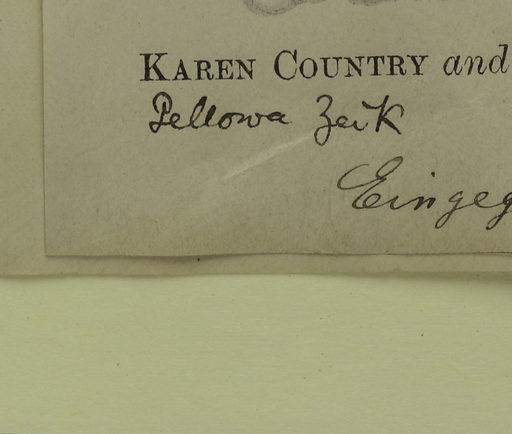 KAREN COUNTRY and
Pellowa Zeik
Eingeg